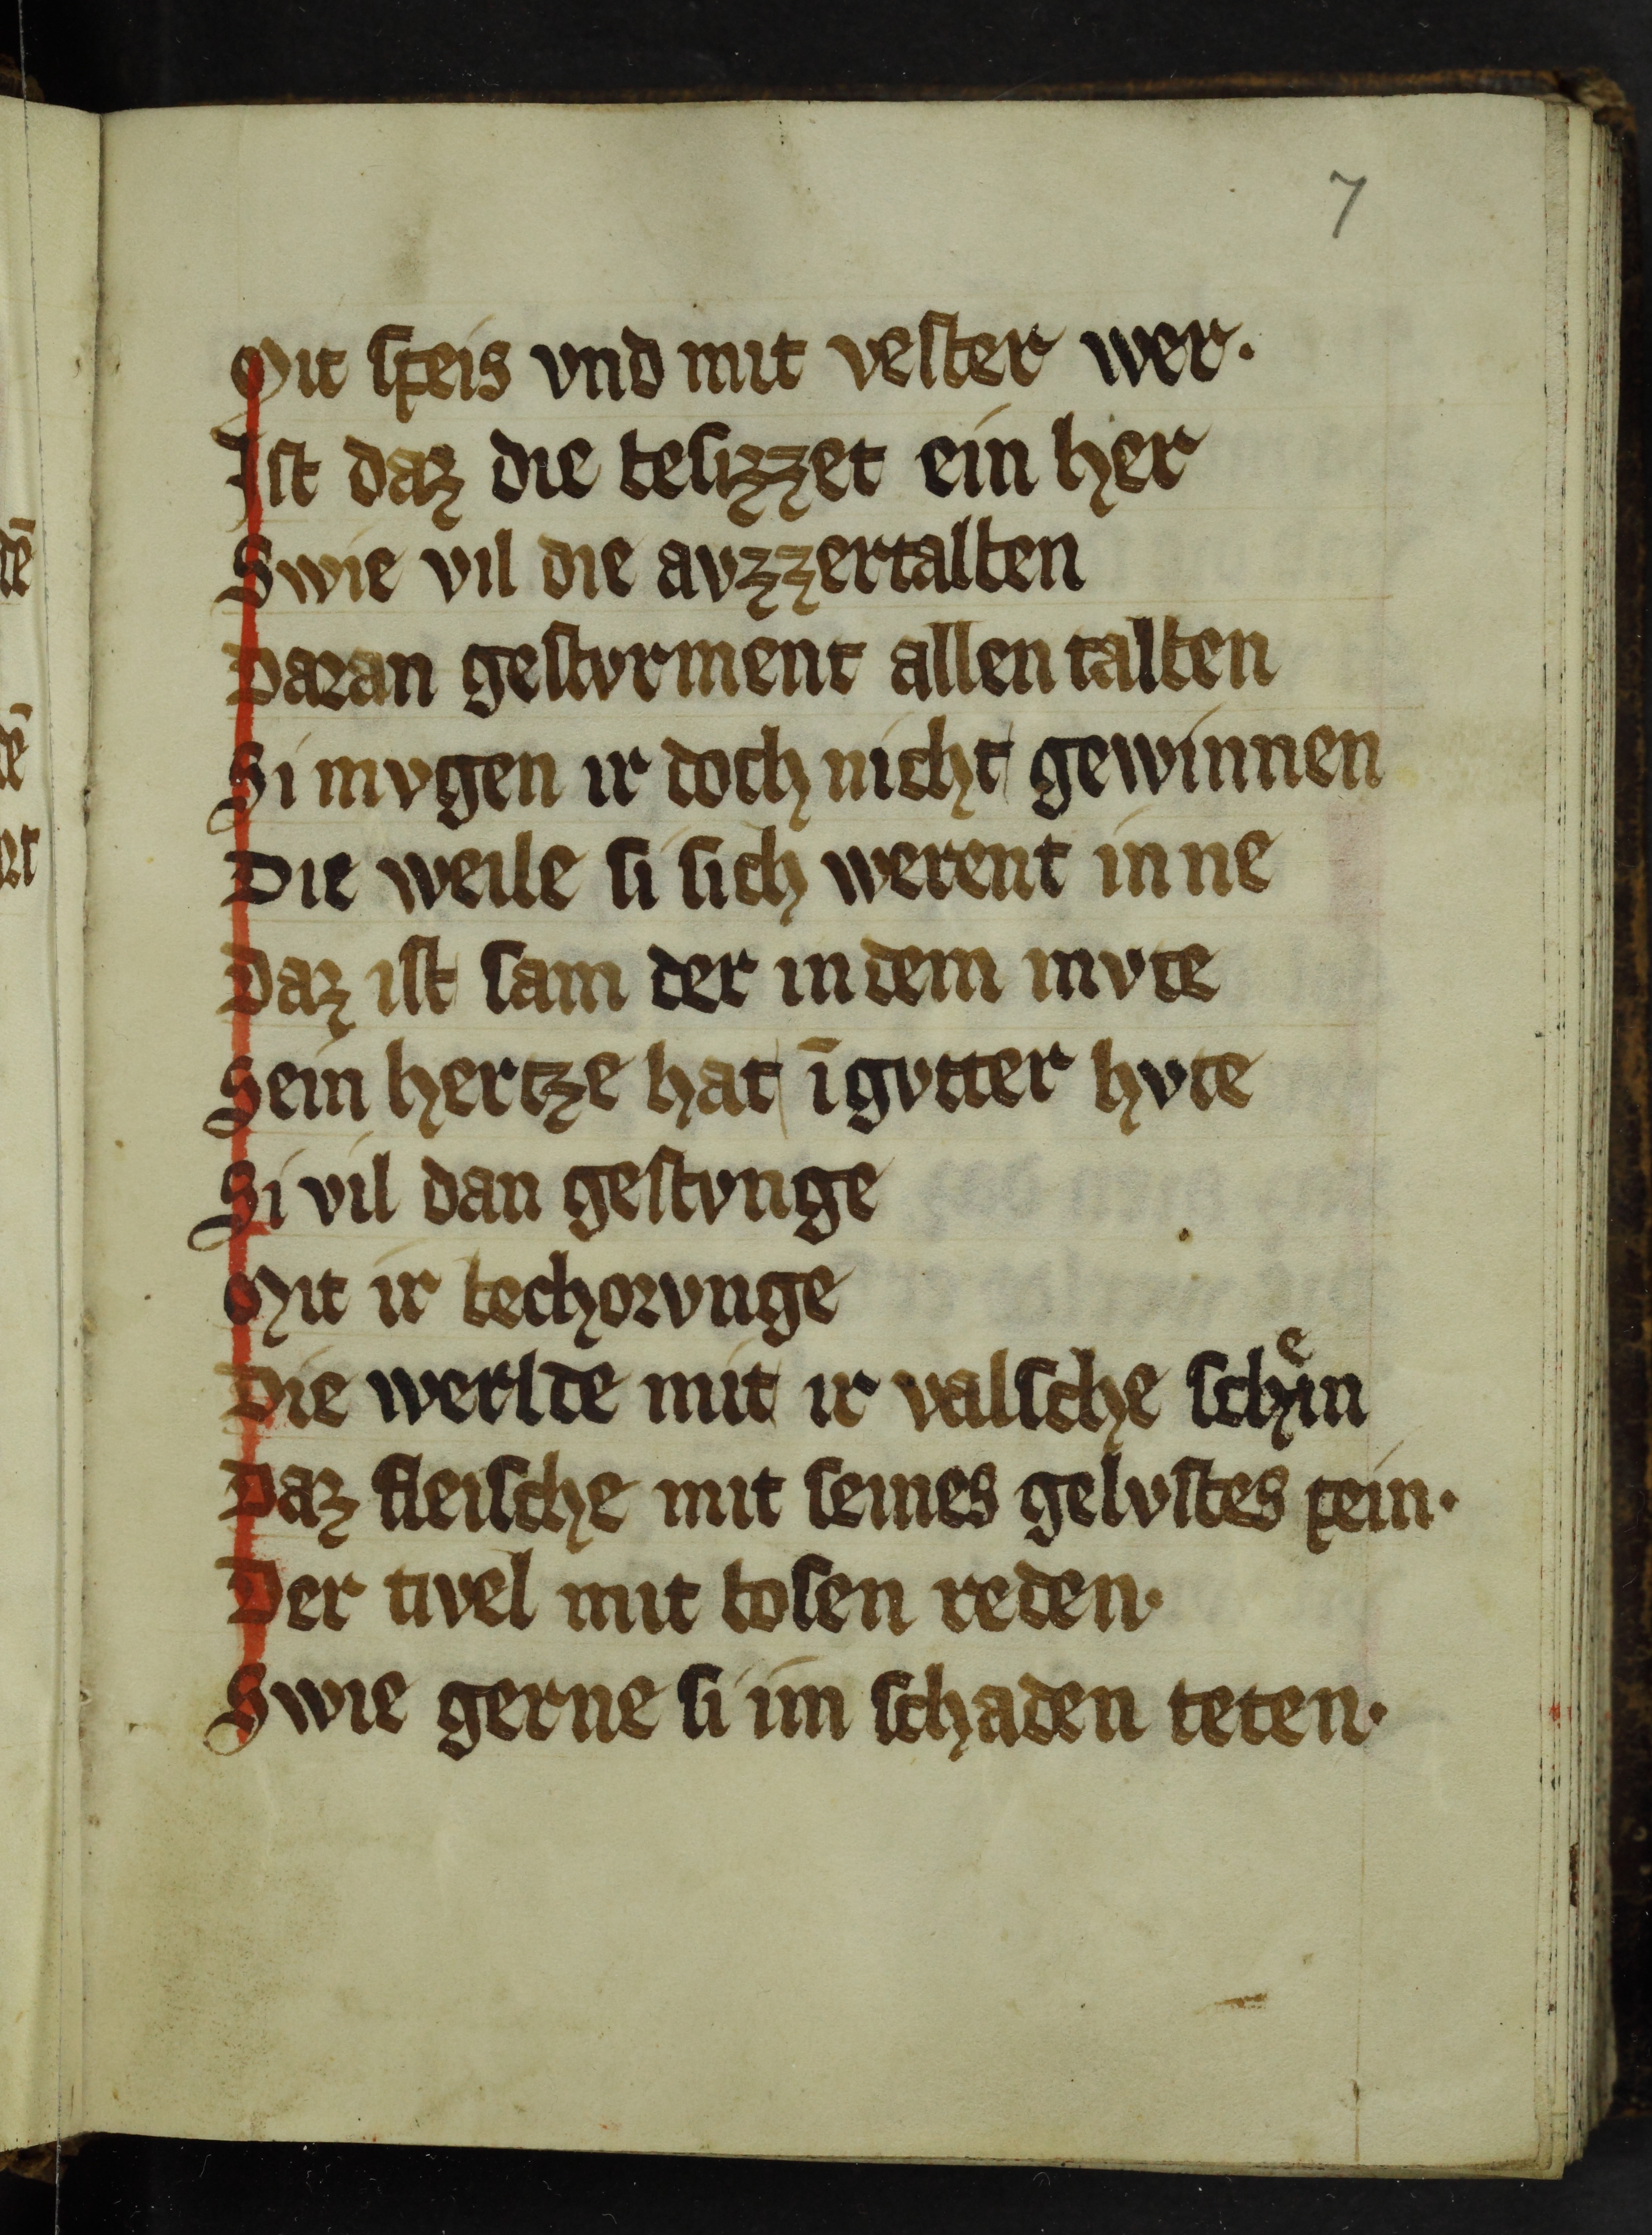 7
Mit ſpeis vnd mit veſter wer·
Iſt daz die beſizzet ein her
Swie vil die avzzertalben
Daran geſtvrment allen talben
Si mvgen ir doch nicht gewinnen
Die weile ſi ſich werent inne
Daz iſt ſam der in dem mvte
Sein hertze hat ī gvtter hvte
Si vil dan geſtvnge
Mit ir bechorvnge
Die werlde mit ir valſche ſchiͤn
Daz fleiſche mit ſeines gelvſtes pein·
Der tivel mit boſen reden·
Swie gerne ſi im ſchaden teten·